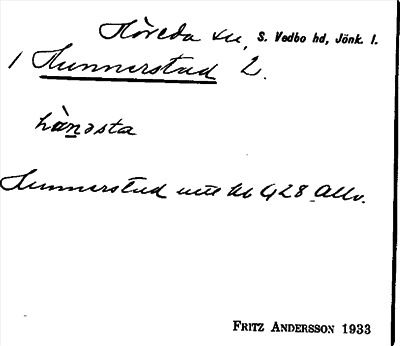 Höreda sn, S. Vedbo hd, Jönk. l.
1 Hunnerstad 2.
hànəsta
Hunnerstad G 28 Allv.
FRITZ ANDERSSON 1933